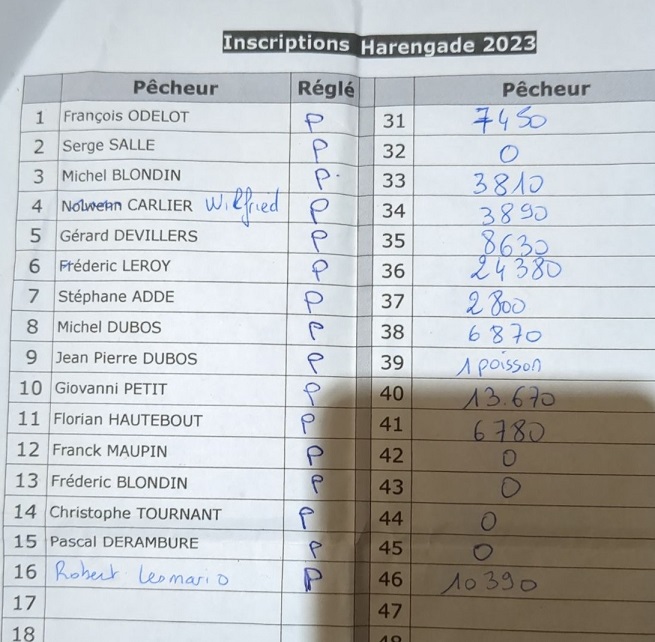 Inscriptions Harengade 2023
Pêcheur Réglé Pêcheur
1 François ODELOT P 31 7450
2 Serge SALLE P 32 0
3 Michel BLONDIN P 33 3810
4 Nolwenn CARLIER Wilfried P 34 3890
5 Gérard DEVILLERS P 35 8630
6 Fréderic LEROY P 36 24380
7 Stéphane ADDE P 37 2800
8 Michel DUBOS P 38 6870
9 Jean Pierre DUBOS P 39 1 poisson
10 Giovanni PETIT P 40 13.670
11 Florian HAUTEBOUT P 41 6780
12 Franck MAUPIN P 42 0
13 Fréderic BLONDIN P 43 0
14 Christophe TOURNANT P 44 0
15 Pascal DERAMBURE P 45 0
16 Robert Leomario P 46 10390
17 47
18 48